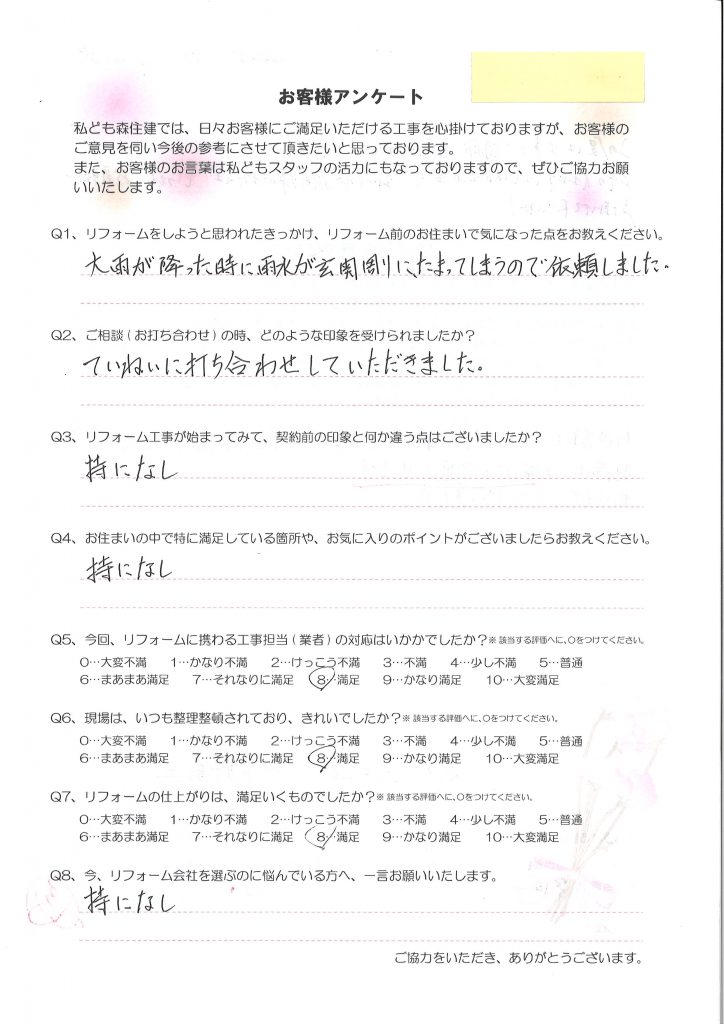 お客様アンケート
私ども森住建では、日々お客様にご満足いただける工事を心掛けておりますが、お客様の
ご意見を伺い今後の参考にさせて頂きたいと思っております。
また、お客様のお言葉は私どもスタッフの活力にもなっておりますので、ぜひご協力お願
いいたします。
Q1、リフォームをしようと思われたきっかけ、リフォーム前のお住まいで気になった点をお教えください。
大雨が降った時に雨水が玄関周りに、たまってしまうので依頼しました。
Q2、ご相談(お打ち合わせ)の時、どのような印象を受けられましたか?
ていねいに打ち合わせしていただきました。
Q3、リフォーム工事が始まってみて、契約前の印象と何か違う点はございましたか?
持になし
Q4、お住まいの中で特に満足している箇所や、お気に入りのポイントがございましたらお教えください。
持になし
Q5、今回、リフォームに携わる工事担当(業者)の対応はいかかでしたか?※該当する評価へに、○をつけてください。
0…大変不満 1…かなり不満 2…けっこう不満 3…不満 4…少し不満 5…普通
6…まあまあ満足 7…それなりに満足 8…満足 9…かなり満足 10…大変満足
Q6、現場は、いつも整理整頓されており、きれいでしたか?※該当する評価へに、○をつけてください。
0…大変不満 1…かなり不満 2…けっこう不満 3…不満 4…少し不満 5…普通
6…まあまあ満足 7…それなりに満足 8…満足 9…かなり満足 10…大変満足
Q7、リフォームの仕上がりは、満足いくものでしたか?※該当する評価へに、○をつけてください。
0…大変不満 1…かなり不満 2…けっこう不満 3…不満 4…少し不満 5…普通
6…まあまあ満足 7…それなりに満足 8…満足 9…かなり満足 10…大変満足
Q8、今、リフォーム会社を選ぶのに悩んでいる方へ、一言お願いいたします。
持になし
ご協力をいただき、ありがとうございます。